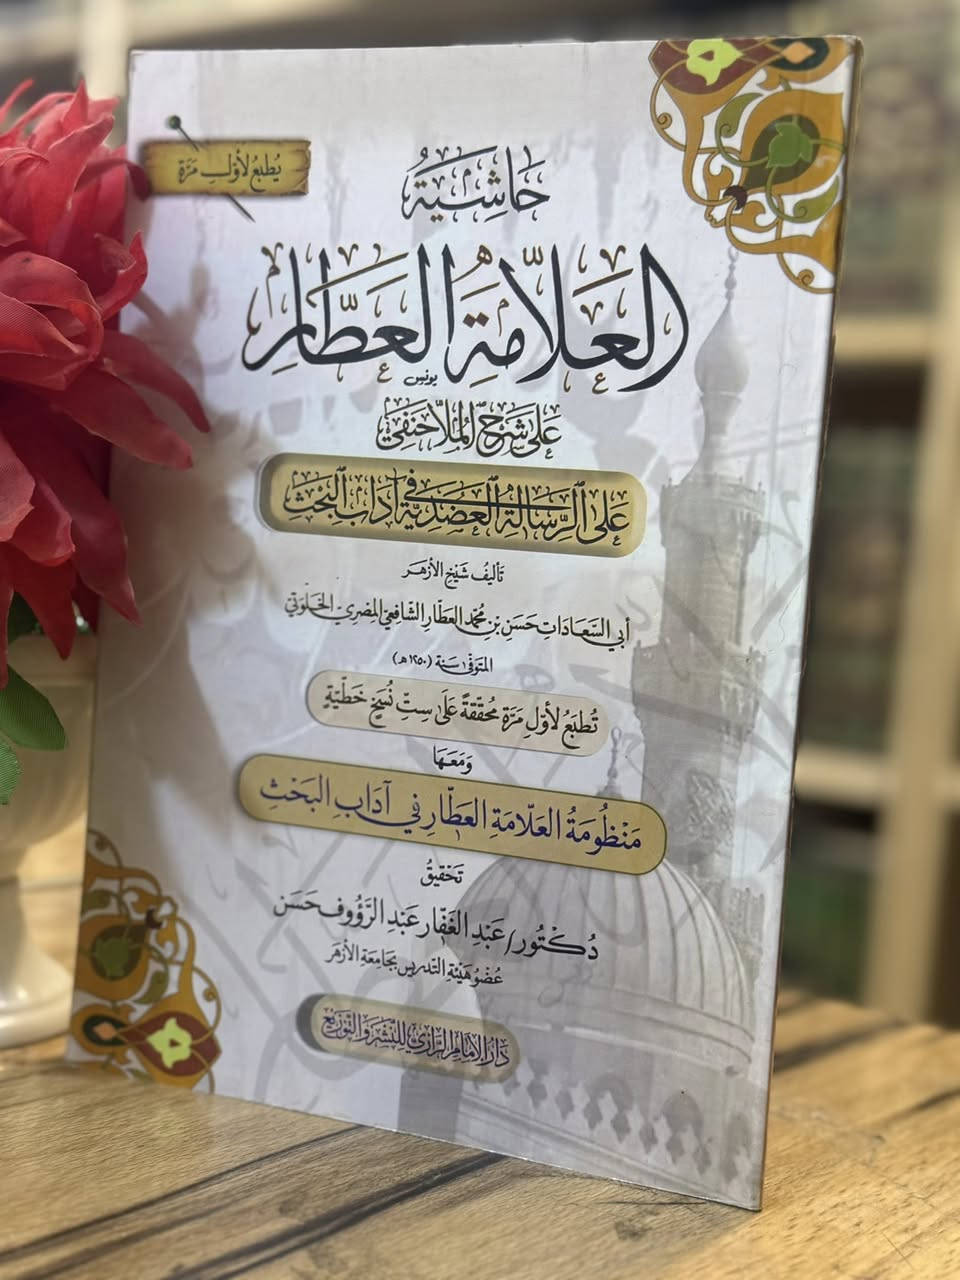 يُطبَعُ لأوّلِ مَرّة
حَاشِيَةُ
العَلاّمَةِ العَطَّارِ
يونس
عَلَى شَرْحِ المُلاَّ حَنَفِي
عَلَى الرِّسَالَةِ العَضُدِيَّةِ فِي آدَابِ البَحْثِ
تَأليفُ شَيْخِ الأزهَر
أبي السَّعَادَاتِ حَسَنِ بنِ مُحمّد العَطّارِ الشّافعيّ المِصْريّ الخَلوَتي
المتوَفّى سَنة (١٢٥٠هـ)
تُطبَعُ لأوّلِ مَرّة مُحقّقةً عَلى سِتِّ نُسَخٍ خَطّيّةٍ
وَمَعَهَا
مَنْظُومَةُ العَلاّمَةِ العَطّارِ في آدَابِ البَحْثِ
تَحْقيقُ
دُكْتُور/ عَبْدِ الغَفّار عَبْدِ الرَّؤُوف حَسَن
عُضْو هَيْئةِ التّدريسِ بجَامِعَةِ الأزهَر
دَارُ الإمَامِ الرَّازِي لِلنَّشْرِ وَالتَّوْزِيعِ